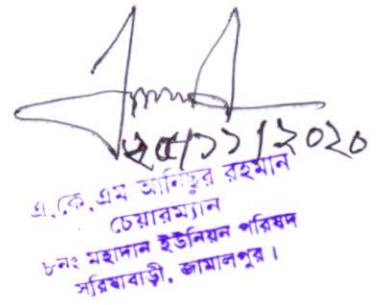 ২৫/১১/২০২০
এ.কে.এম আনিছুর রহমান
চেয়ারম্যান
৮নং মহাদান ইউনিয়ন পরিষদ
সরিষাবাড়ী, জামালপুর।